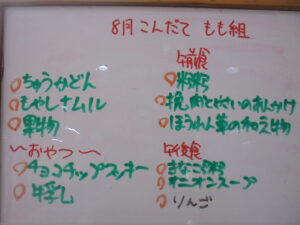 8月こんだて もも組
ちゅうかどん
もやしナムル
果物
〜おやつ〜
チョコチップクッキー
牛乳
午前食
粉粥
挽肉とやさいのあんかけ
ほうれん草の和え物
午後食
きなこ粥
オニオンスープ
りんご